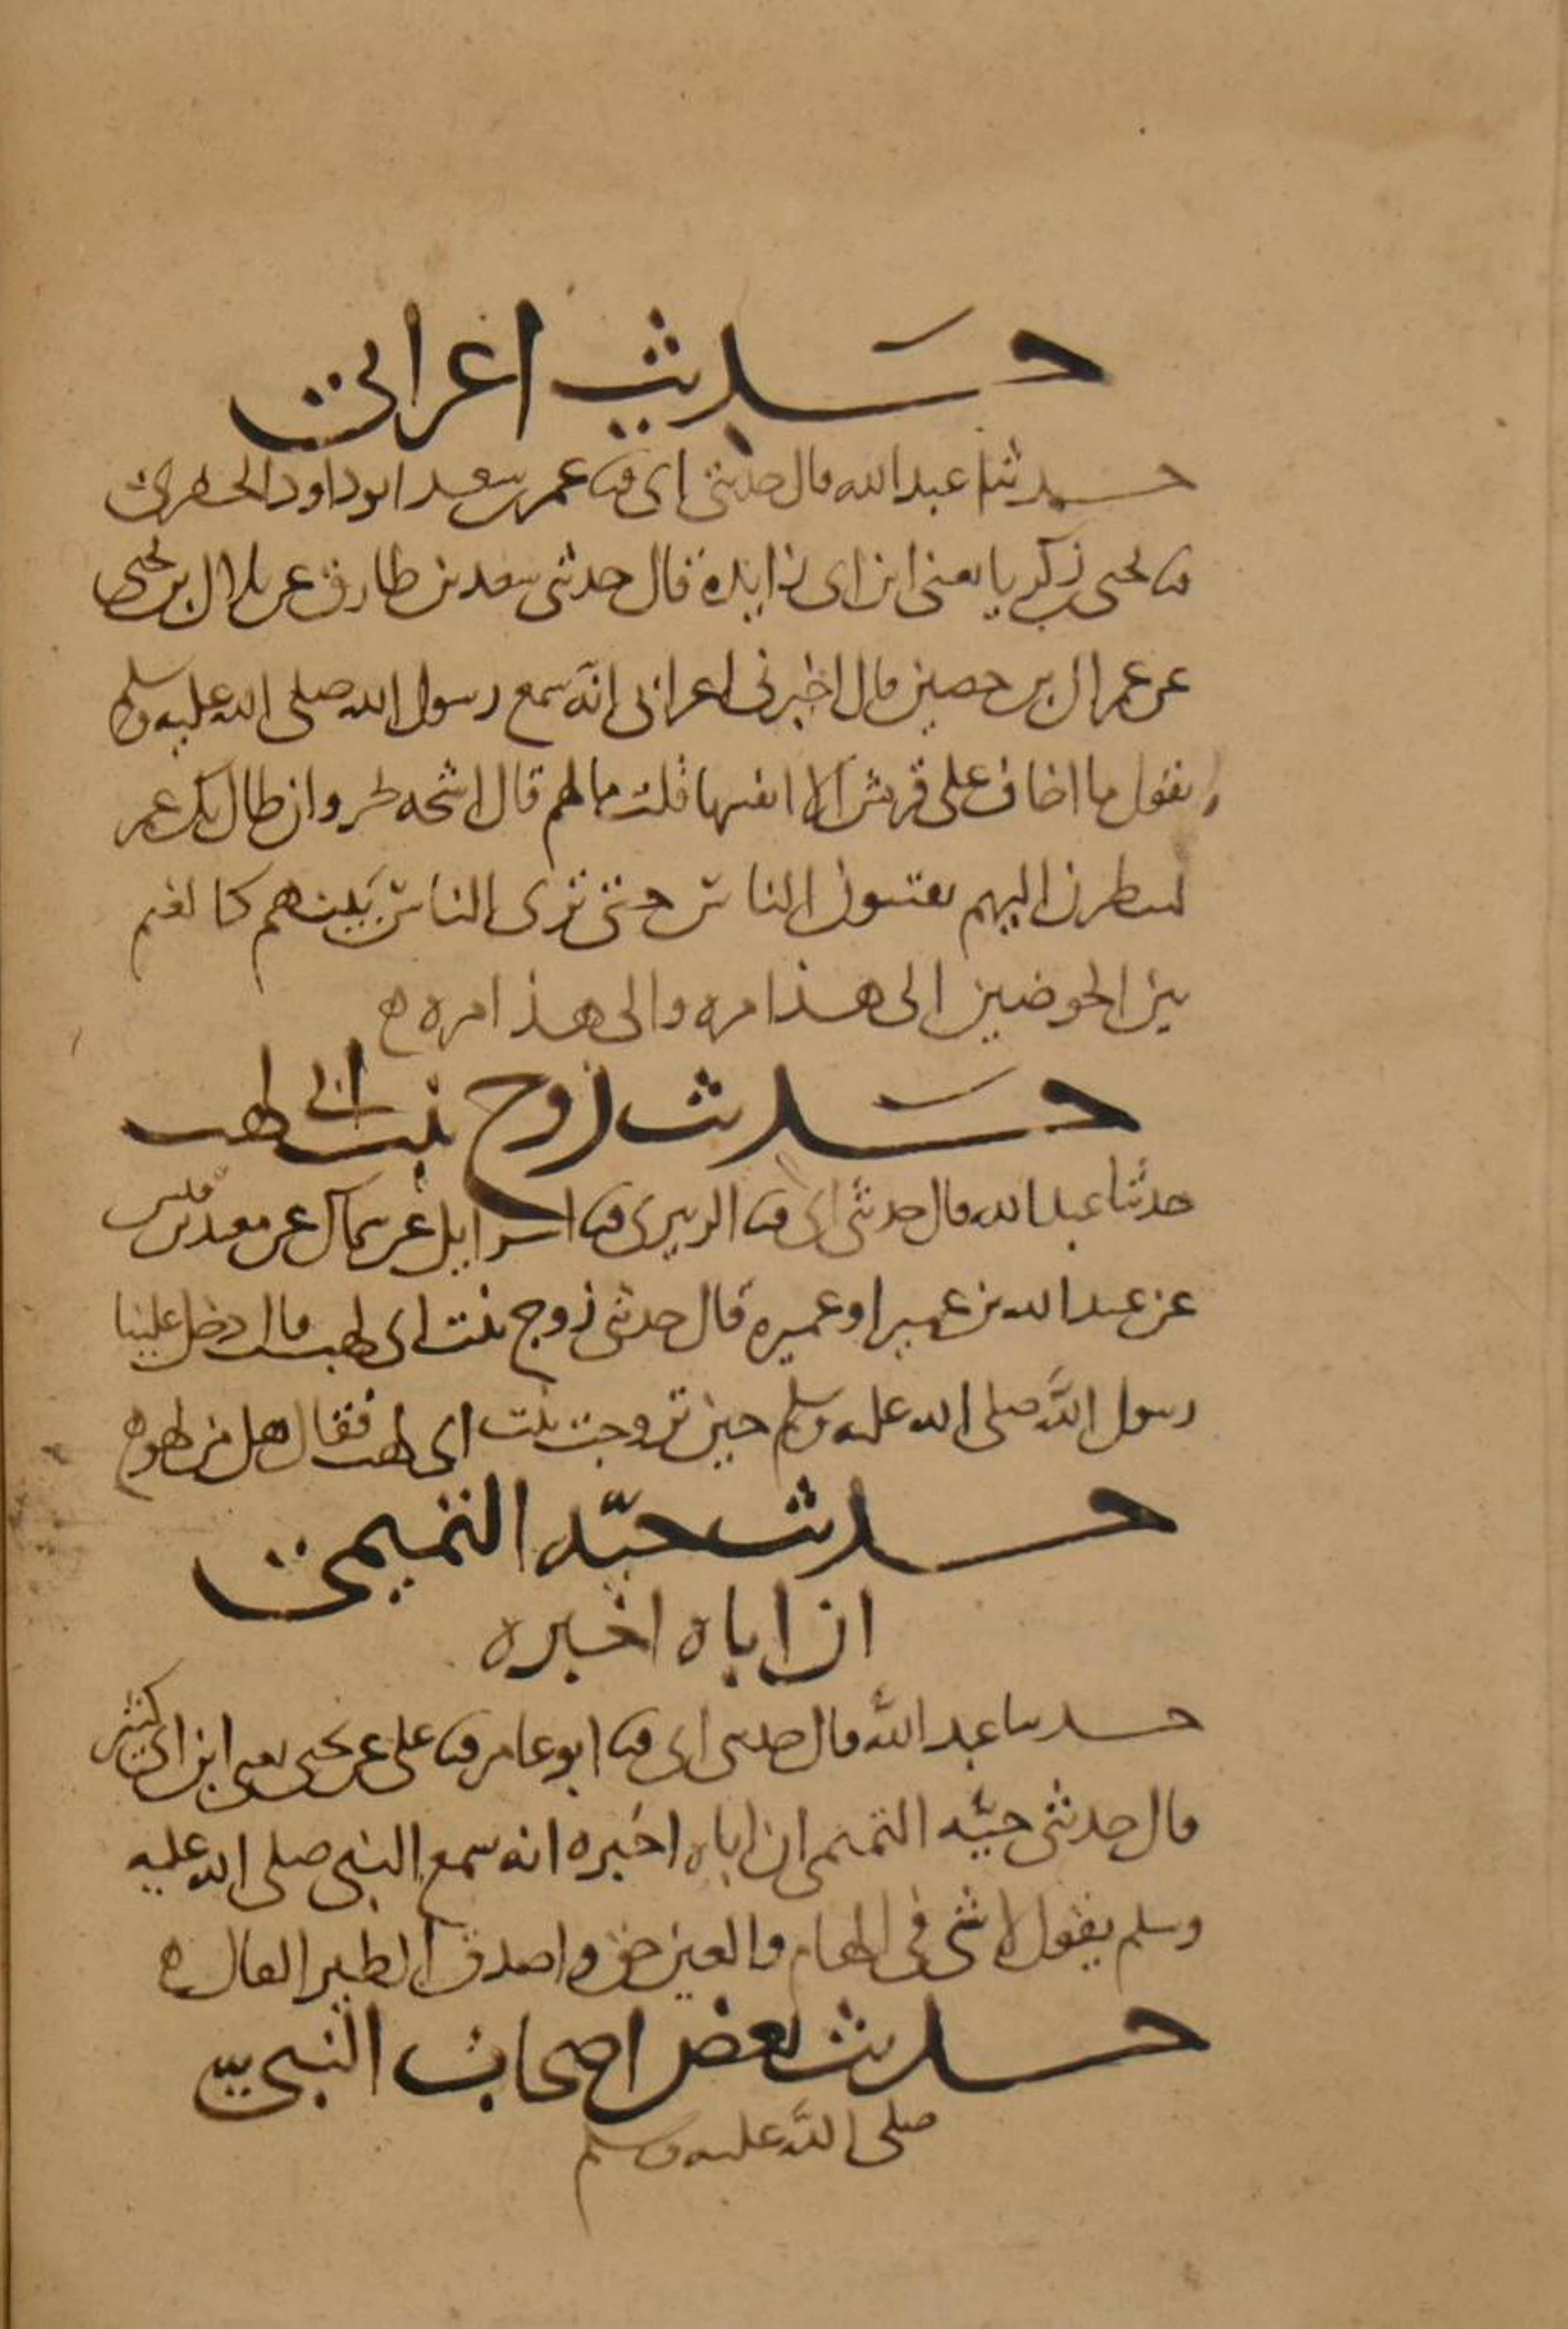 حديث اعرابي
حدثنا عبد الله قال حدثني ابي ثنا عمر بن سعد ابو داود الحفري
ثنا يحيى بن زكريا يعني ابن ابي زايدة قال حدثني سعد بن طارق عن بلال بن يحيى
عن عمران بن حصين قال اخبرني اعرابي انه سمع رسول الله صلى الله عليه وسلم
يقول ما اخاف على قريش الا انفسها قلت ما لهم قال اشحه بجره وان طال بك عمر
لتنظرن اليهم يفتنون الناس حتى ترى الناس بينهم كالغنم
بين الحوضين الى هذا مره والى هذا مره
حديث زوج بنت ابي لهب
حدثنا عبد الله قال حدثني ابي ثنا الزبيري ثنا اسرايل عن سماك عن معبد بن قيس
عن عبد الله بن عمير او عميره قال حدثني زوج بنت ابي لهب قال دخل علينا
رسول الله صلى الله عليه وسلم حين تزوجت بنت ابي لهب فقال هل من لهو
حديث حيّه التميمي
ان اباه اخبره
حدثنا عبد الله قال حدثني ابي ثنا ابو عامر ثنا علي عن يحيى يعني ابن ابي كثير
قال حدثني حيّه التميمي ان اباه اخبره انه سمع النبي صلى الله عليه
وسلم يقول لا شي في الهام والعين حق واصدق الطير الفال
حديث بعض اصحاب النبي
صلى الله عليه وسلم